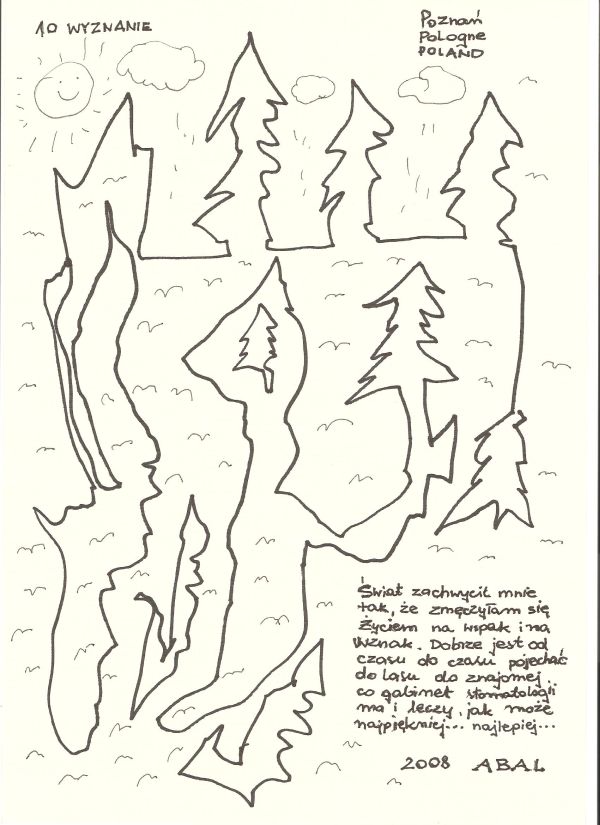 10 WYZNANIE
Poznań
Pologne
POLAND
Świat zachwycił mnie
tak, że zmęczyłam się
życiem na wspak i na
wznak. Dobrze jest od
czasu do czasu pojechać
do lasu do znajomej
co gabinet stomatologii
ma i leczy, jak może
najpiękniej... najlepiej...
2008 ABAL